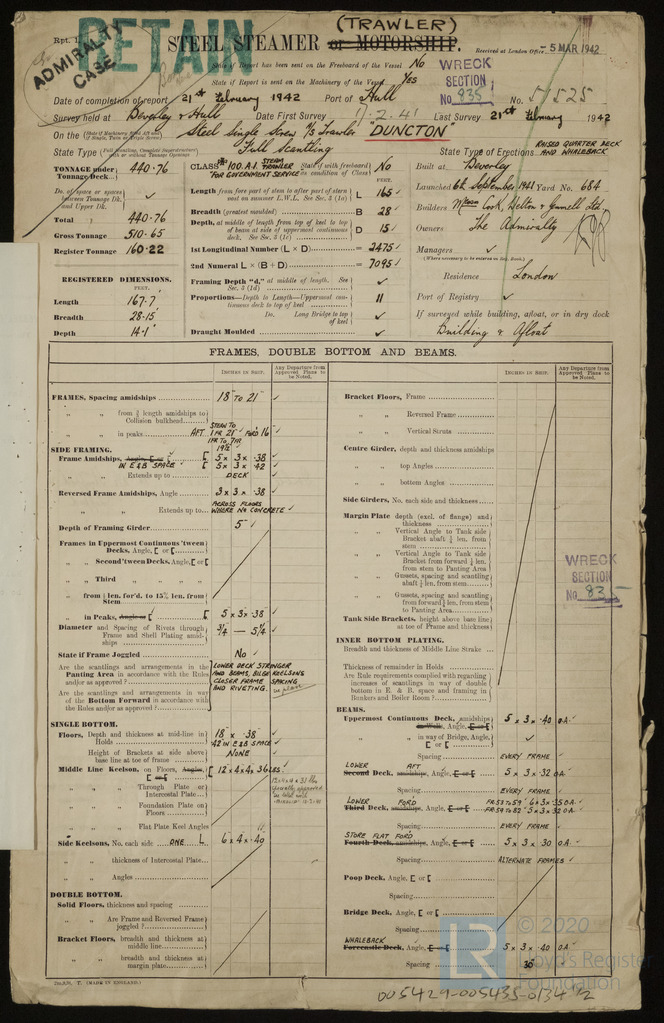 RETAIN
ADMIRALTY
CASE
Rpt. 1.
(TRAWLER)
STEEL STEAMER or MOTORSHIP.
Received at London Office 5 MAR 1942
State if Report has been sent on the Freeboard of the Vessel No
State if Report is sent on the Machinery of the Vessel Yes
WRECK
SECTION
No 835
Date of completion of report 21st February 1942 Port of Hull No. 51525
Survey held at Beverley & Hull Date First Survey 17.2.41 Last Survey 21st February 1942
On the Steel Single Screw S/S Trawler "DUNCTON"
State Type Full Scantling
State Type of Erections RAISED QUARTER DECK AND WHALEBACK
TONNAGE under Tonnage Deck 440.76
Do. of space or spaces between Tonnage Dk. and Upper Dk. ✓
Total 440.76
Gross Tonnage 510.65
Register Tonnage 160.22
REGISTERED DIMENSIONS.
FEET.
Length 167.7
Breadth 28.15
Depth 14.1
CLASS 100.A.1. STEAM TRAWLER FOR GOVERNMENT SERVICE State if with freeboard as condition of Class No
FEET.
Length from fore part of stem to after part of stern post on summer L.W.L. See Sec. 3 (1a) L 165
Breadth (greatest moulded) B 28
Depth, at middle of length from top of keel to top of beam at side of uppermost continuous deck. See Sec. 3 (1c) D 15
1st Longitudinal Number (L × D) = 2475
2nd Numeral L × (B + D) = 7095
Framing Depth "d," at middle of length. See Sec. 3 (1d) ✓
Proportions—Depth to Length—Uppermost continuous deck to top of keel 11
Do. Long Bridge to top of keel ✓
Draught Moulded ✓
Built at Beverley
Launched 6th September 1941 Yard No. 684
Builders Messrs Cook, Welton & Gemmell Ltd
Owners The Admiralty
Managers ✓
(Where necessary to be entered in Reg. Book.)
Residence London
Port of Registry ✓
If surveyed while building, afloat, or in dry dock
Building & Afloat
FRAMES, DOUBLE BOTTOM AND BEAMS.
INCHES IN SHIP.
Any Departure from Approved Plans to be Noted.
FRAMES, Spacing amidships 18" TO 21" ✓
" " from ⅗ length amidships to Collision bulkhead
" " in peaks AFT STERN TO 1 FR 21" FOR'D 16" 1 FR TO 7 FR 19½"
SIDE FRAMING.
Frame Amidships, Angle, [ 5 × 3 × .38
IN E&B SPACE [ 5 × 3 × .42
" " Extends up to DECK
Reversed Frame Amidships, Angle 3 × 3 × .38
" " Extends up to ACROSS FLOORS WHERE NO CONCRETE
Depth of Framing Girder 5"
Frames in Uppermost Continuous 'tween Decks, Angle, [ or [
" " Second 'tween Decks, Angle, [ or [
" " Third " " "
" from ¼ len. for'd. to 15% len. from Stem
" in Peaks, Angle or [ 5 × 3 × .38
Diameter and Spacing of Rivets through Frame and Shell Plating amidships ¾ — 5¼
State if Frame Joggled No
Are the scantlings and arrangements in the Panting Area in accordance with the Rules and/or as approved?
Are the scantlings and arrangements in way of the Bottom Forward in accordance with the Rules and/or as approved?
LOWER DECK STRINGER AND BEAMS, BILGE KEELSONS CLOSER FRAME SPACING AND RIVETING.
SINGLE BOTTOM.
Floors, Depth and thickness at mid-line in Holds 18" × .38
.42 IN E&B SPACE
" Height of Brackets at side above base line at toe of frame NONE
Middle Line Keelson, on Floors, Angles, [ or [ 12 × 4 × 4 × 36 LBS.
" " Through Plate or Intercostal Plate
" " Foundation Plate on Floors
" " Flat Plate Keel Angles
Side Keelsons, No. each side ONE L 6 × 4 × .40
" " thickness of Intercostal Plate
" " Angles
DOUBLE BOTTOM.
Solid Floors, thickness and spacing
" " Are Frame and Reversed Frame joggled?
Bracket Floors, breadth and thickness at middle line
" " breadth and thickness at margin plate
Bracket Floors, Frame
" " Reversed Frame
" " Vertical Struts
Centre Girder, depth and thickness amidships
" " top Angles
" " bottom Angles
Side Girders, No. each side and thickness
Margin Plate depth (excl. of flange) and thickness
" " Vertical Angle to Tank side Bracket abaft ¼ len. from stem
" " Vertical Angle to Tank side Bracket from forward ¼ len. from stem to Panting Area
" " Gussets, spacing and scantling abaft ¼ len. from stem
" " Gussets, spacing and scantling from forward ¼ len. from stem to Panting Area
Tank Side Brackets, height above base line at toe of Frame and thickness
WRECK
SECTION
No 835
INNER BOTTOM PLATING.
Breadth and thickness of Middle Line Strake
Thickness of remainder in Holds
Are Rule requirements complied with regarding increases of scantlings in way of double bottom in E. & B. space and framing in Bunkers and Boiler Room?
BEAMS.
Uppermost Continuous Deck, amidships in Wells, Angle, [ or [ 5 × 3 × .40 O.A.
" " in way of Bridge, Angle, [ or [ ✓
Spacing EVERY FRAME
LOWER AFT
Second Deck, amidships, Angle, [ or [ 5 × 3 × .32 O.A.
Spacing EVERY FRAME
LOWER FORD
Third Deck, amidships, Angle, [ or [ FR 53 TO 59 6 × 3 × .35 O.A.
FR 59 TO 82 5 × 3 × .32 O.A.
Spacing EVERY FRAME
STORE FLAT FORD
Fourth Deck, amidships, Angle, [ or [ 5 × 3 × .30 O.A.
Spacing ALTERNATE FRAMES
Poop Deck, Angle, [ or [
Spacing
Bridge Deck, Angle, [ or [
Spacing
WHALEBACK
Forecastle Deck, Angle, [ or [ 5 × 3 × .40 O.A.
Spacing 36
© 2020
Lloyd's Register
Foundation
005429-005435-0134 ½